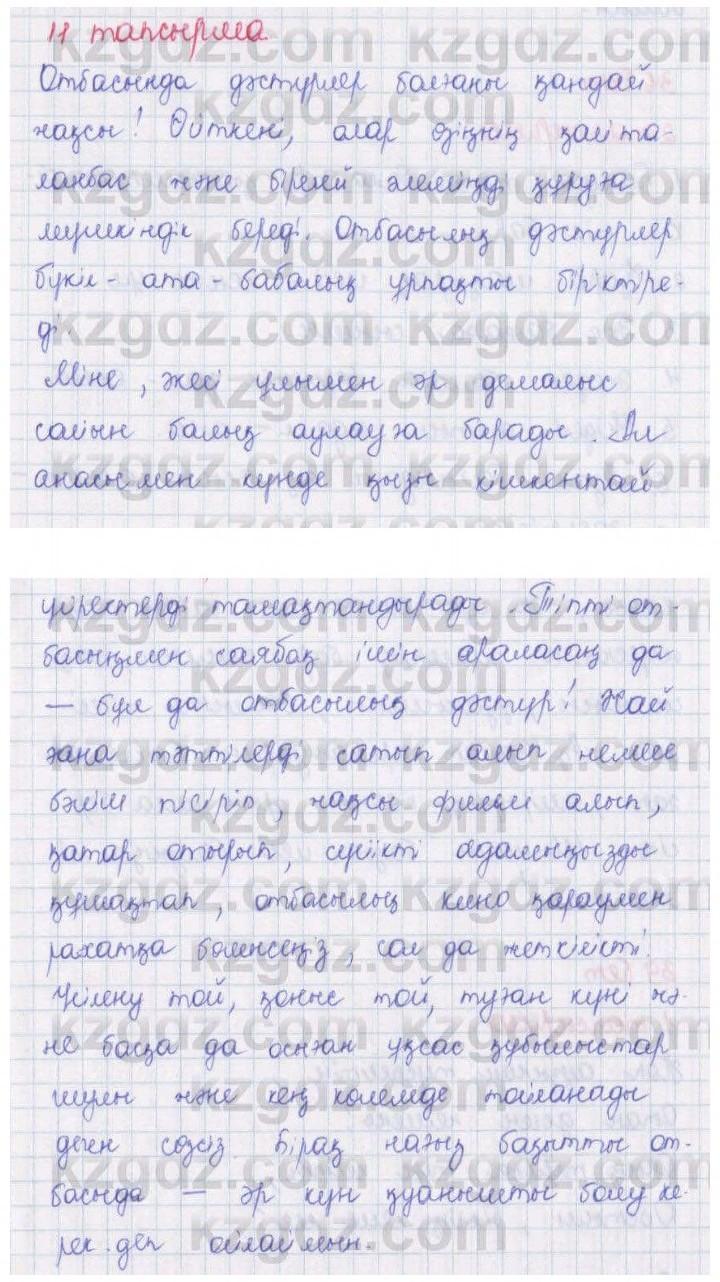 11 тапсырма
Отбасында дәстүрлер болғаны қандай
жақсы! Өйткені, олар өзіңнің қайта-
ланбас және бірегей әлеміңді құруға
мүмкіндік береді. Отбасылық дәстүрлер
бүкіл-ата-бабалық ұрпақты біріктіре-
ді.
Міне, әкесі ұлымен әр демалыс
сайын балық аулауға барады. Ал
анасымен күнде қызы кішкентай
үйректерді тамақтандырады. Тіпті от-
басыңмен саябақ ішін араласаң да
— бұл да отбасылық дәстүр! Жай
ғана тәттілерді сатып алып немесе
бәліш пісіріп, жақсы фильм алып,
қатар отырып, сүйікті адамыңызды
құшақтап, отбасылық кино қараумен
рахатқа бөленсеңіз, сол да жеткілікті!
Үйлену той, қоныс той, туған күні жә-
не басқа да осыған ұқсас құбылыстар
шулы және кең көлемде тойланады
деген сөзсіз. Бірақ нағыз бақытты от-
басында — әр күн қуанышты болу ке-
рек деп ойлаймын.
kzgdz.com